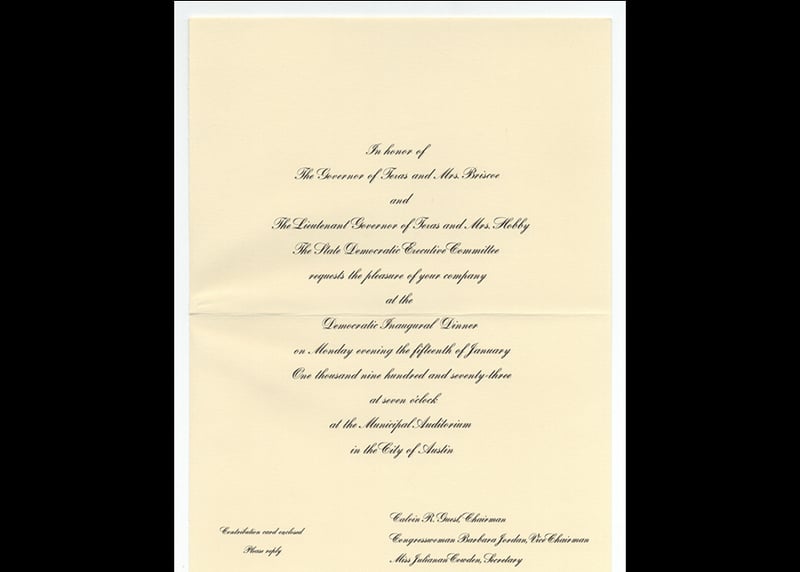 In honor of
The Governor of Texas and Mrs. Briscoe
and
The Lieutenant Governor of Texas and Mrs. Hobby
The State Democratic Executive Committee
requests the pleasure of your company
at the
Democratic Inaugural Dinner
on Monday evening the fifteenth of January
One thousand nine hundred and seventy-three
at seven o'clock
at the Municipal Auditorium
in the City of Austin
Contribution card enclosed
Please reply
Calvin R. Guest, Chairman
Congresswoman Barbara Jordan, Vice Chairman
Miss Julianan Cowden, Secretary